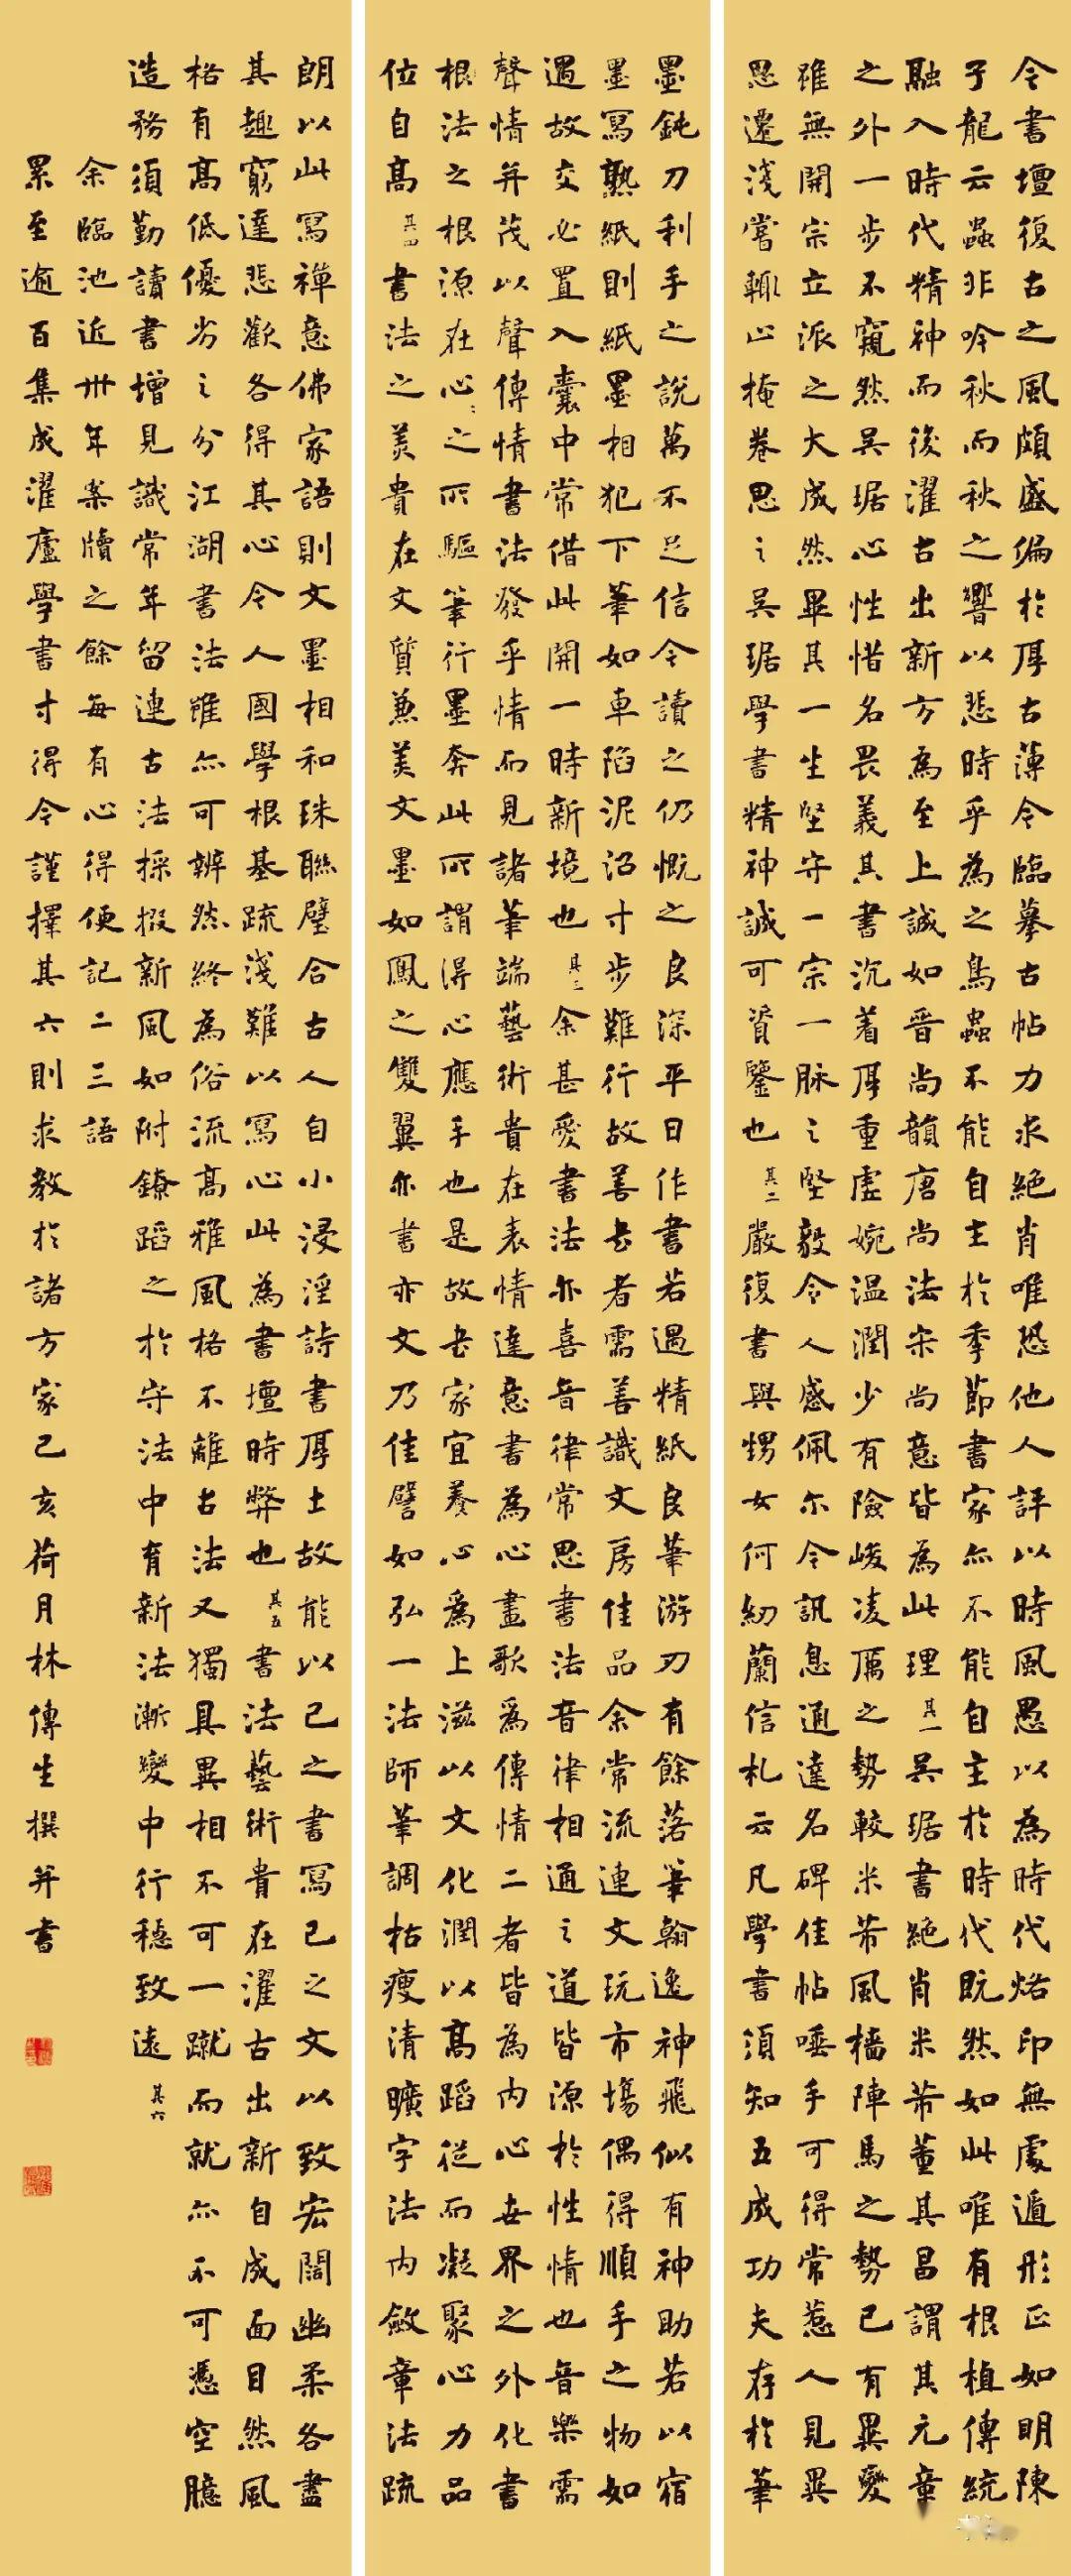 今書壇復古之風頗盛偏於厚古薄今臨摹古帖力求絕肖唯恐他人評以時風愚以為時代烙印無處遁形正如明陳
子龍云蟲非吟秋而秋之響以悲時乎為之鳥蟲不能自主於季節書家亦不能自主於時代既然如此唯有根植傳統
融入時代精神而後濯古出新方為至上誠如晋尚韻唐尚法宋尚意皆為此理其一吴琚書絕肖米芾董其昌謂其元章
之外一步不窺然吴琚心性惜名畏義其書沉着厚重虛婉温潤少有險峻凌厲之勢較米芾風檣陣馬之勢已有異變
雖無開宗立派之大成然畢其一生堅守一宗一脉之堅毅令人感佩尒今訊息通達名碑佳帖唾手可得常惹人見異
思遷淺嘗輒止掩卷思之吴琚學書精神誠可資鑒也其二嚴復書與甥女何紉蘭信札云凡學書須知五成功夫存於筆
墨鈍刀利手之說萬不足信今讀之仍慨之良深平日作書若遇精紙良筆游刃有餘落筆翰逸神飛似有神助若以宿
墨寫熟紙則紙墨相犯下筆如車陷泥沼寸步難行故善書者需善識文房佳品余常流連文玩市場偶得順手之物如
遇故交必置入囊中常借此開一時新境也其三余甚愛書法亦喜音律常思書法音律相通之道皆源於性情也音樂需
聲情并茂以聲傳情書法發乎情而見諸筆端藝術貴在表情達意書為心畫歌為傳情二者皆為内心世界之外化書
根法之根源在心心之所驅筆行墨奔此所謂得心應手也是故書家宜養心為上滋以文化潤以高蹈從而凝聚心力品
位自高其四書法之美貴在文質兼美文墨如鳳之雙翼亦書亦文乃佳譬如弘一法師筆調枯瘦清曠字法内斂章法疏
朗以此寫禪意佛家語則文墨相和珠聯璧合古人自小浸淫詩書厚土故能以己之書寫己之文以致宏闊幽柔各盡
其趣窮達悲歡各得其心今人國學根基疏淺難以寫心此為書壇時弊也其五書法藝術貴在濯古出新自成面目然風
格有高低優劣之分江湖書法雖亦可辨然終為俗流高雅風格不離古法又獨具異相不可一蹴而就亦不可憑空臆
造務須勤讀書增見識常年留連古法採掇新風如附鐐蹈之於守法中有新法漸變中行穩致遠其六
余臨池近卅年案牘之餘每有心得便記二三語
累至逾百集成濯廬學書寸得今謹擇其六則求教於諸方家己亥荷月林傳生撰并書